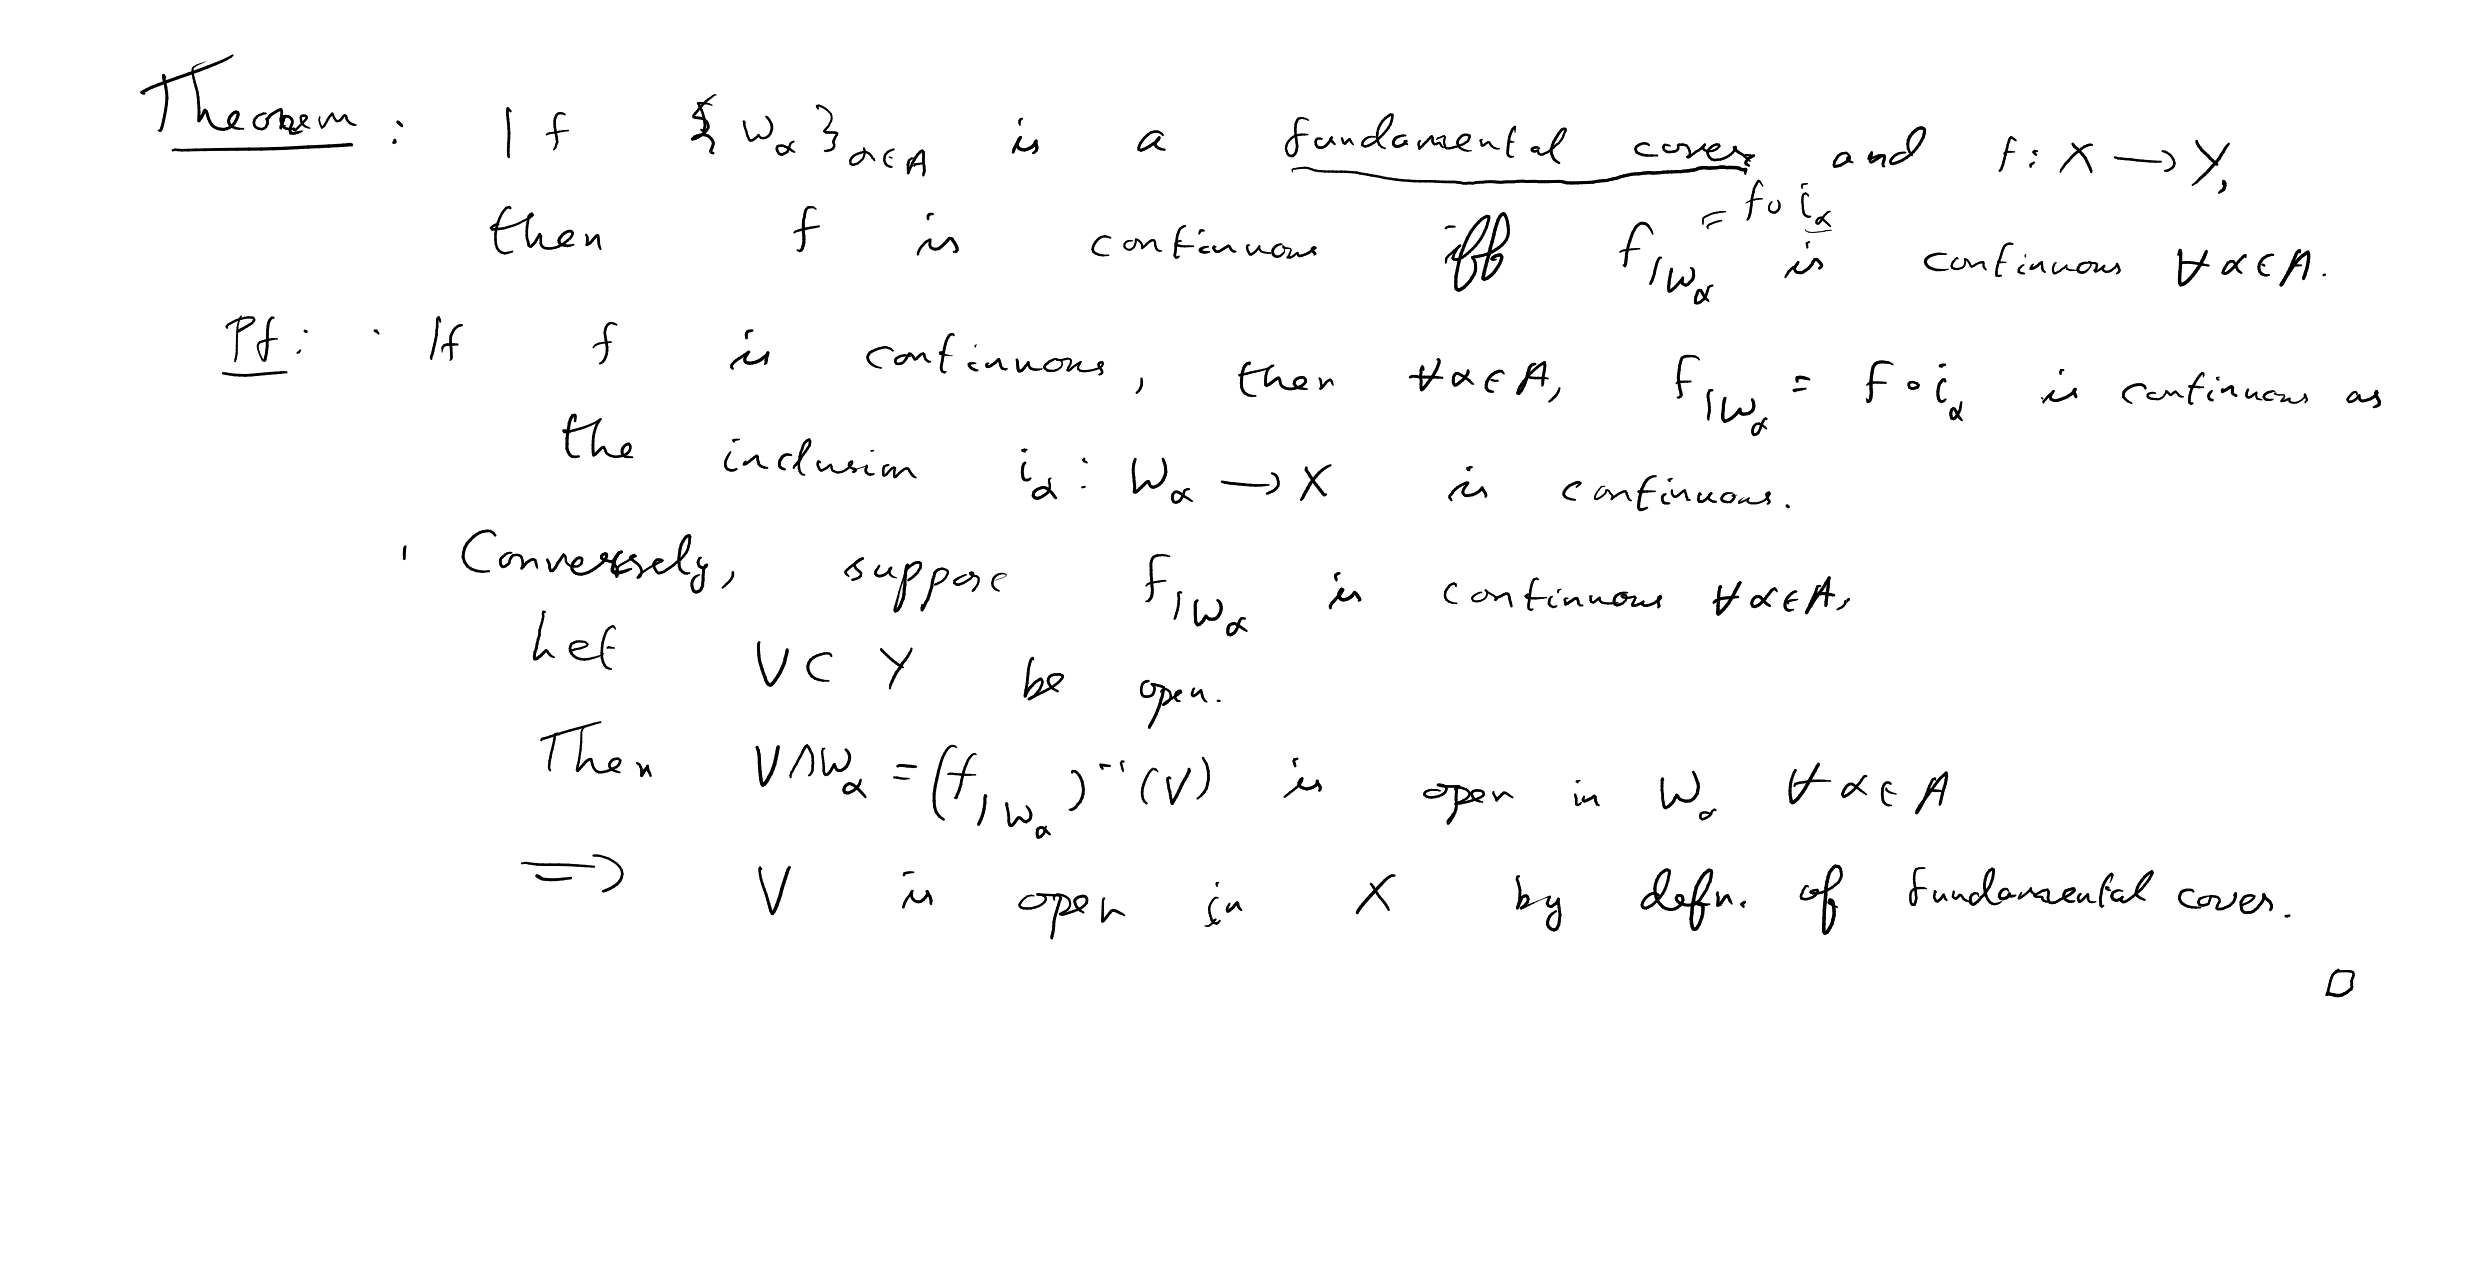 Theorem : If {W_α}_{α∈A} is a fundamental cover and f : X → Y,
then f is continuous iff f_{|W_α} = f∘i_α is continuous ∀ α ∈ A.
Pf : · If f is continuous, then ∀α∈A, f_{|W_α} = f∘i_α is continuous as
the inclusion i_α : W_α → X is continuous.
· Conversely, suppose f_{|W_α} is continuous ∀α∈A,
Let V ⊂ Y be open.
Then V∩W_α = (f_{|W_α})^{-1}(V) is open in W_α ∀ α ∈ A
⇒ V is open in X by defn. of fundamental cover.
□